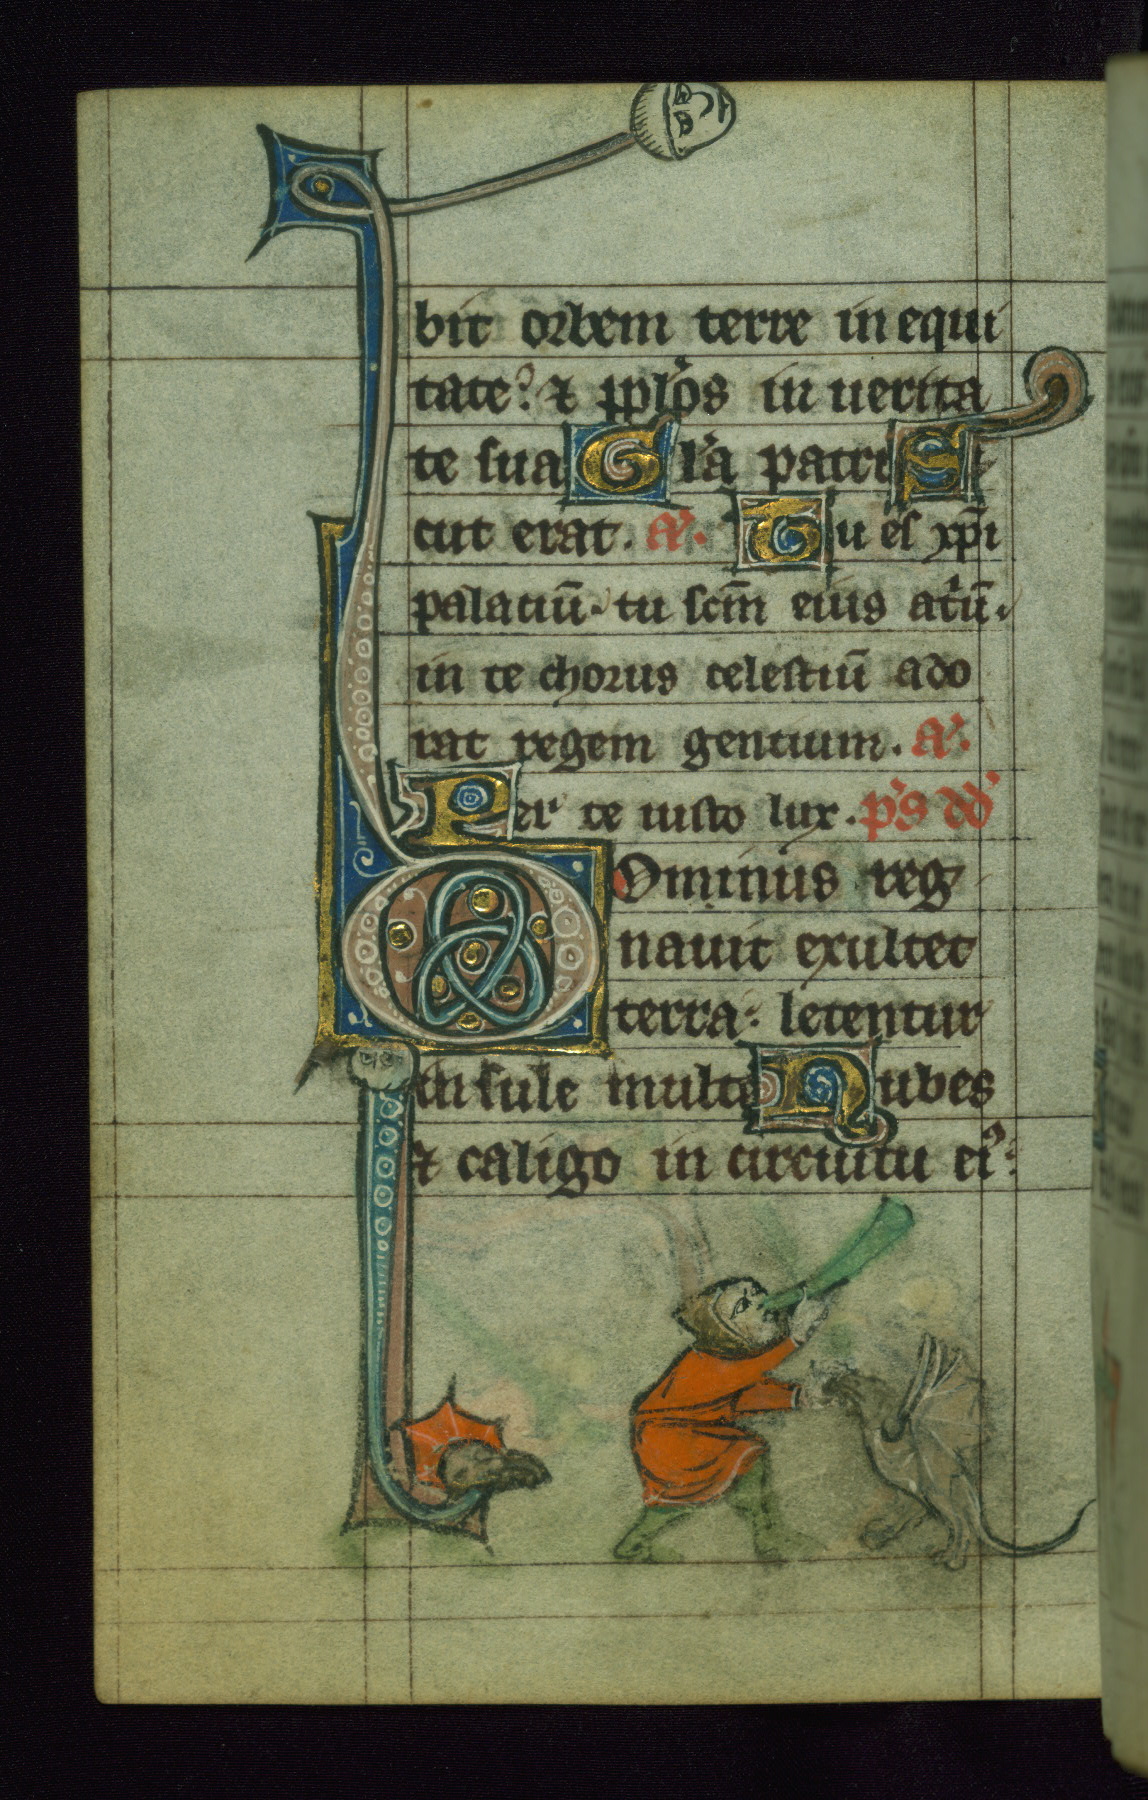 bit orbem terre in equi
tate? ⁊ pplꝰos in uerita
te sua Glꝰa patri S
cut erat. Aꝰ. Tu es xp̄i
palaciū. tu scm̄ eius atꝰū.
in te chorus celestiū ado
rat regem gentium. Aꝰ.
Perꝰ te iusto lux. pꝰs ddꝰ
Dominus reg
nauit exultet
terra: letentur
insule multe Nubes
⁊ caligo in circuitu eiꝰ: